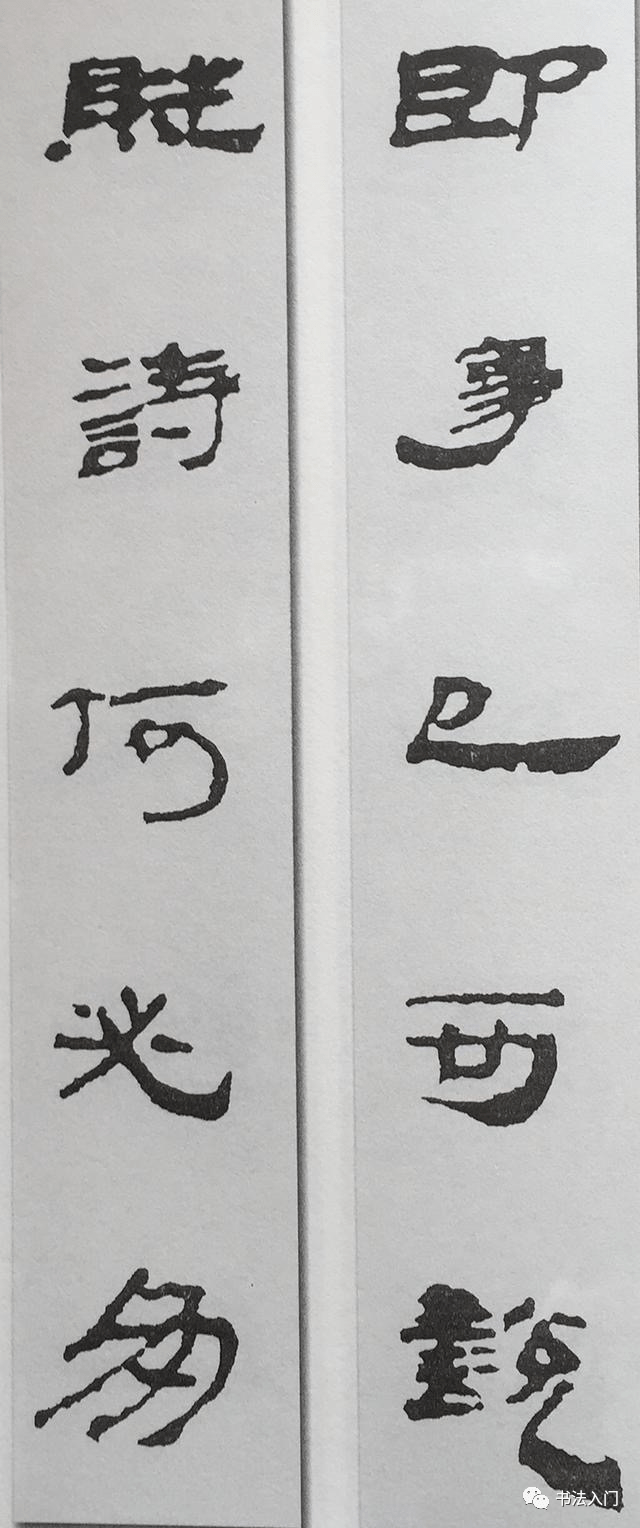 即事已可
賦詩何必多
书法入门